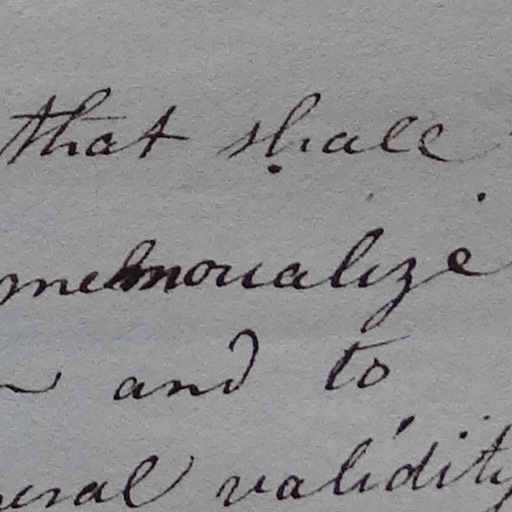 that shall
memorialize
and to
validity